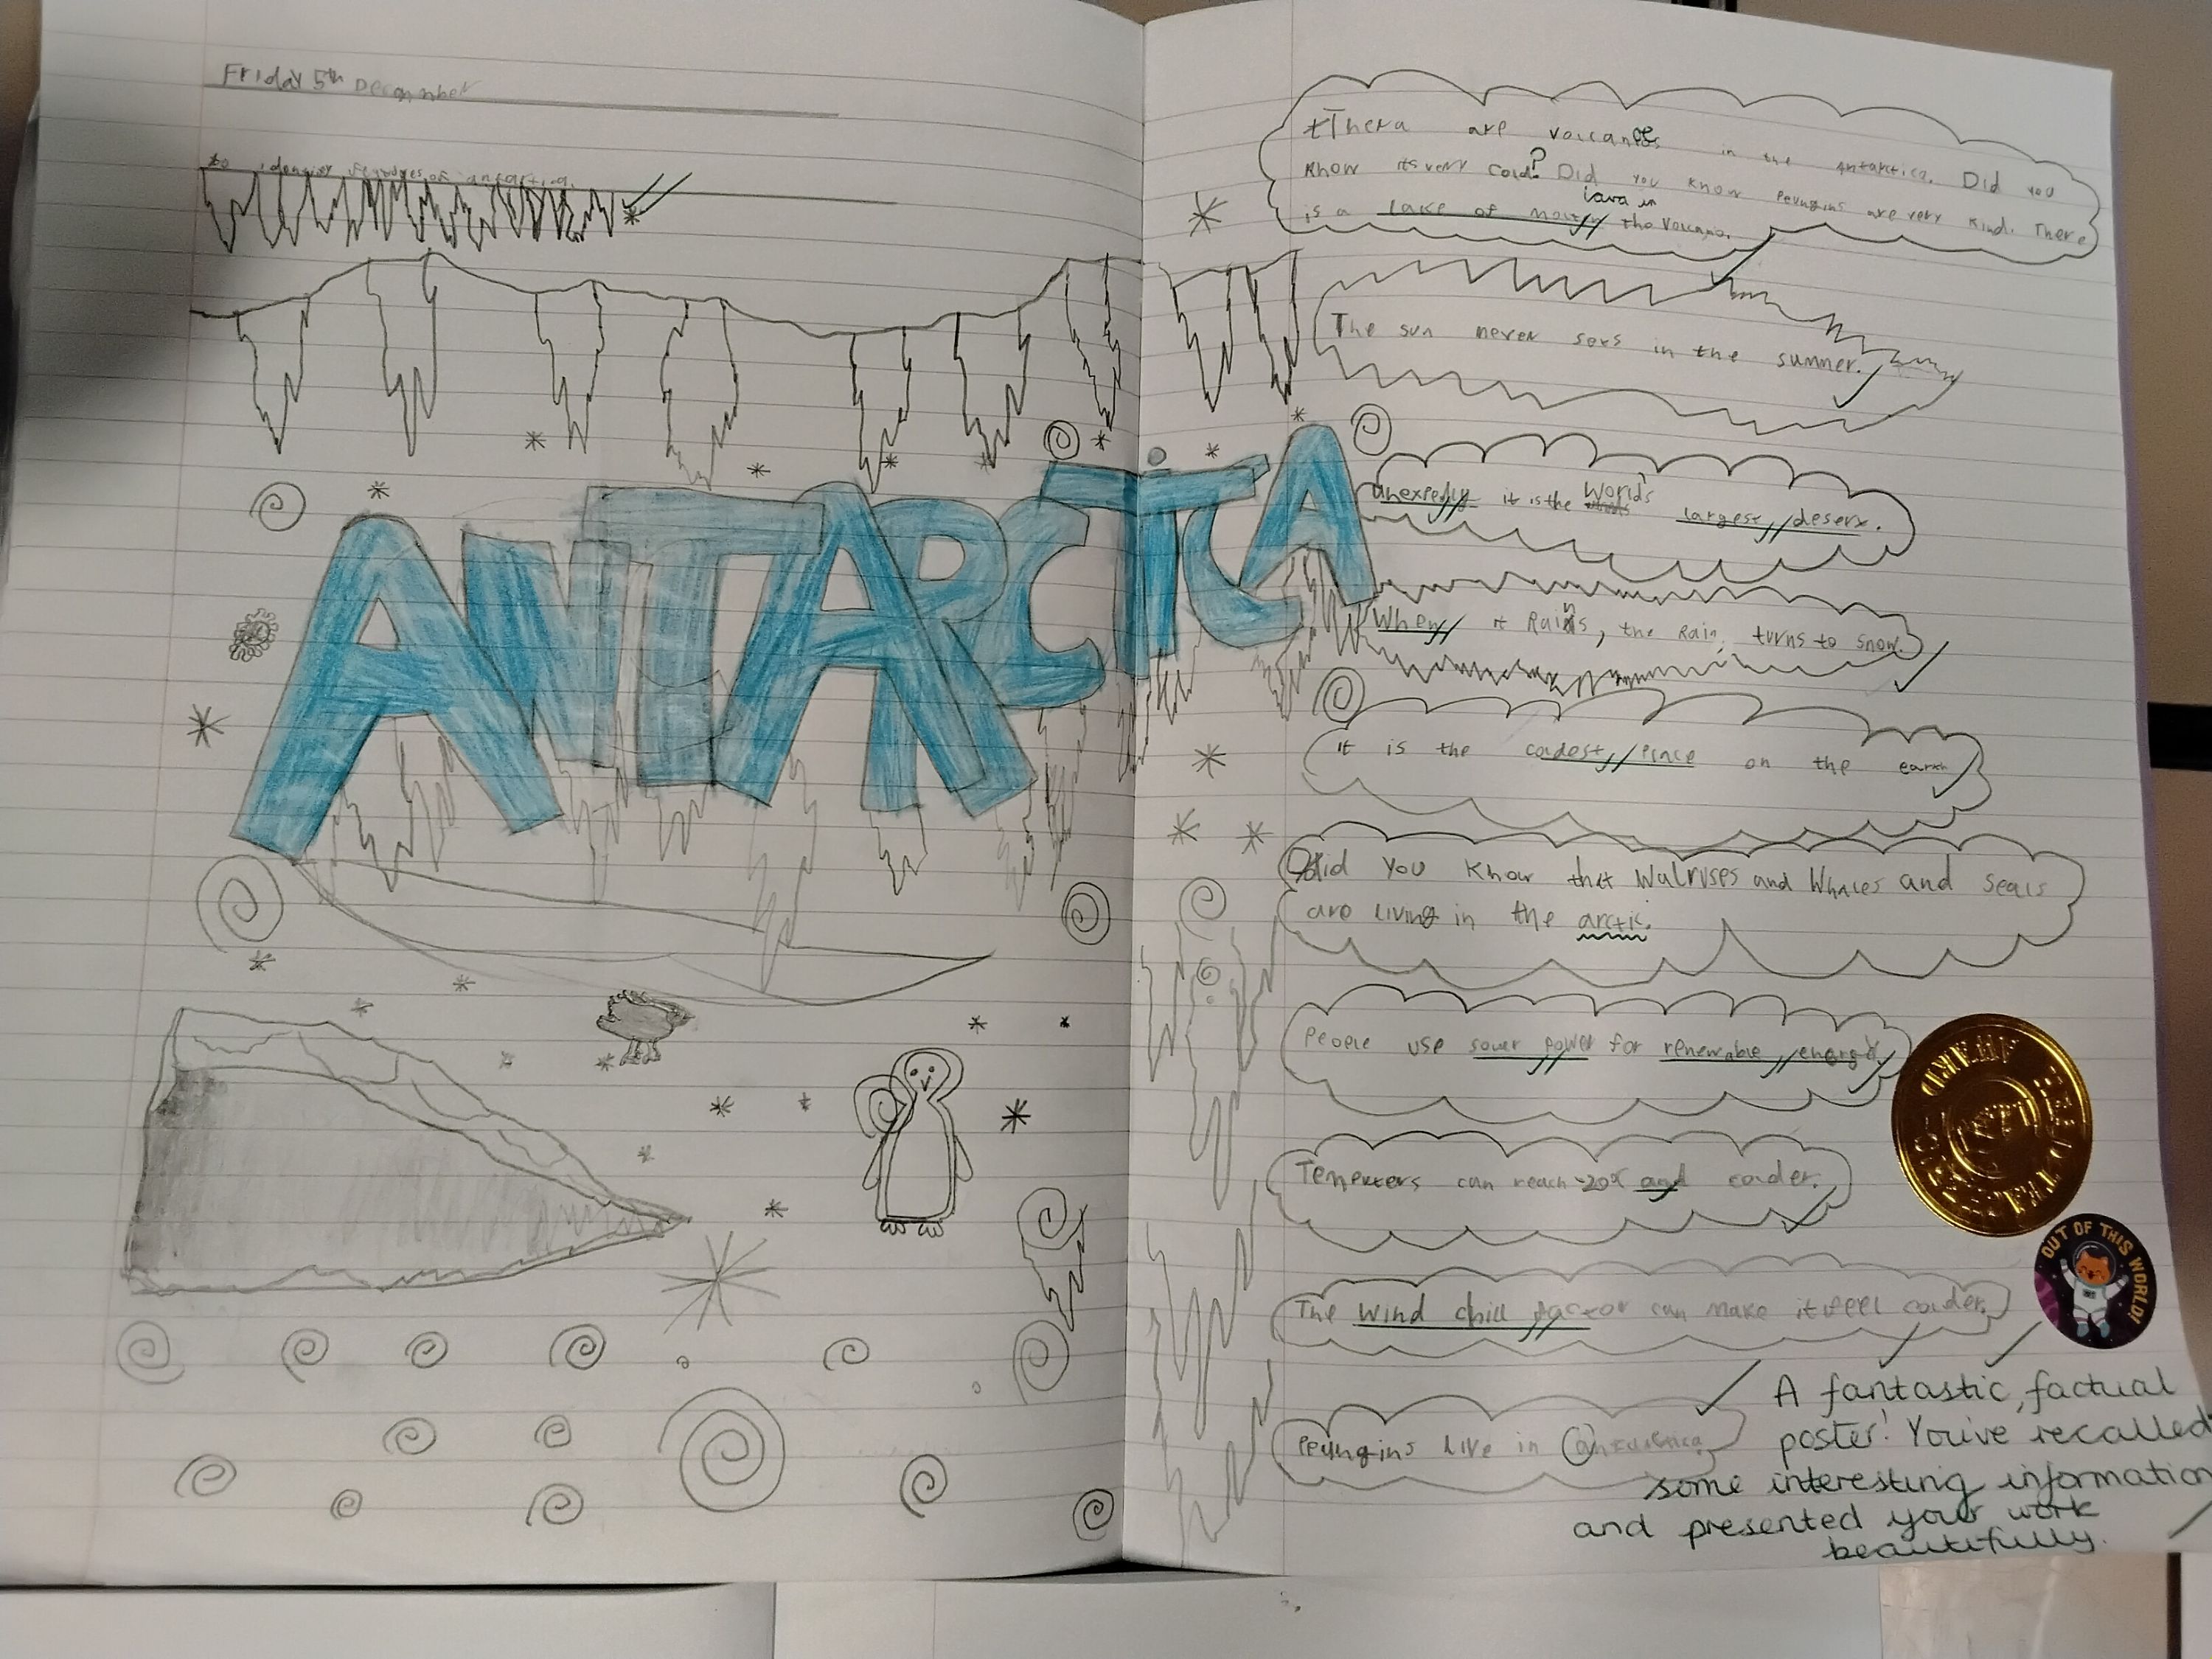 Friday 5th December
to idenify feautures of antartica.
ANTARCTICA
tThera are volcanoes in the Antarctica. Did you
know its very cold? Did you know Peungins are very kind. There
lava in
is a lake of the Volcano.
The sun never sets in the summer.
worlds
unexpedly it is the largest desert.
When it Rains, the Rain turns to snow.
it is the coldest Place on the earth
Did you know that Walruses and Whales and seals
are living in the arctic.
People use solar power for renewable energy
Tempeters can reach -20°c and colder.
The wind chill factor can make it feel colder.
Peungins Live in antartica
AWARD
OUT OF THIS WORLD!
A fantastic, factual
poster! You've recalled
some interesting information
and presented your work
beautifully.